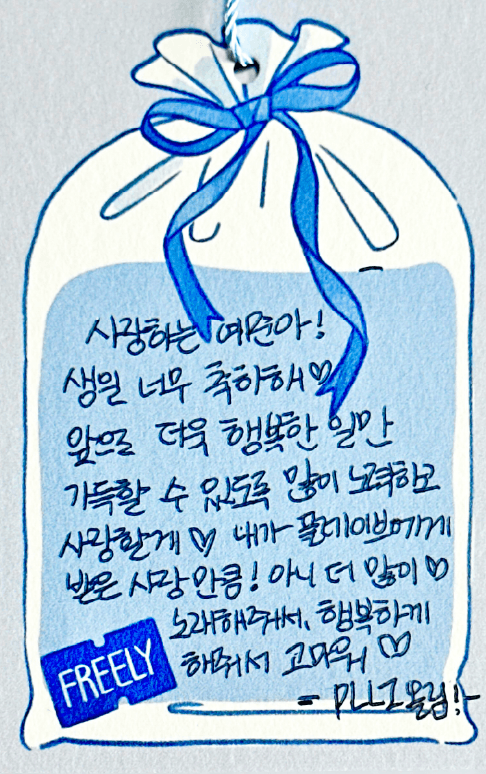 사랑하는 예준아!
생일 너무 축하해♡
앞으로 더욱 행복한 일만
가득할 수 있도록 많이 노력하고
사랑할게♡ 내가 플레이브에게
받은 사랑만큼! 아니 더 많이♡
노래해줘서, 행복하게
해줘서 고마워♡
FREELY
- PLLI 올림!-